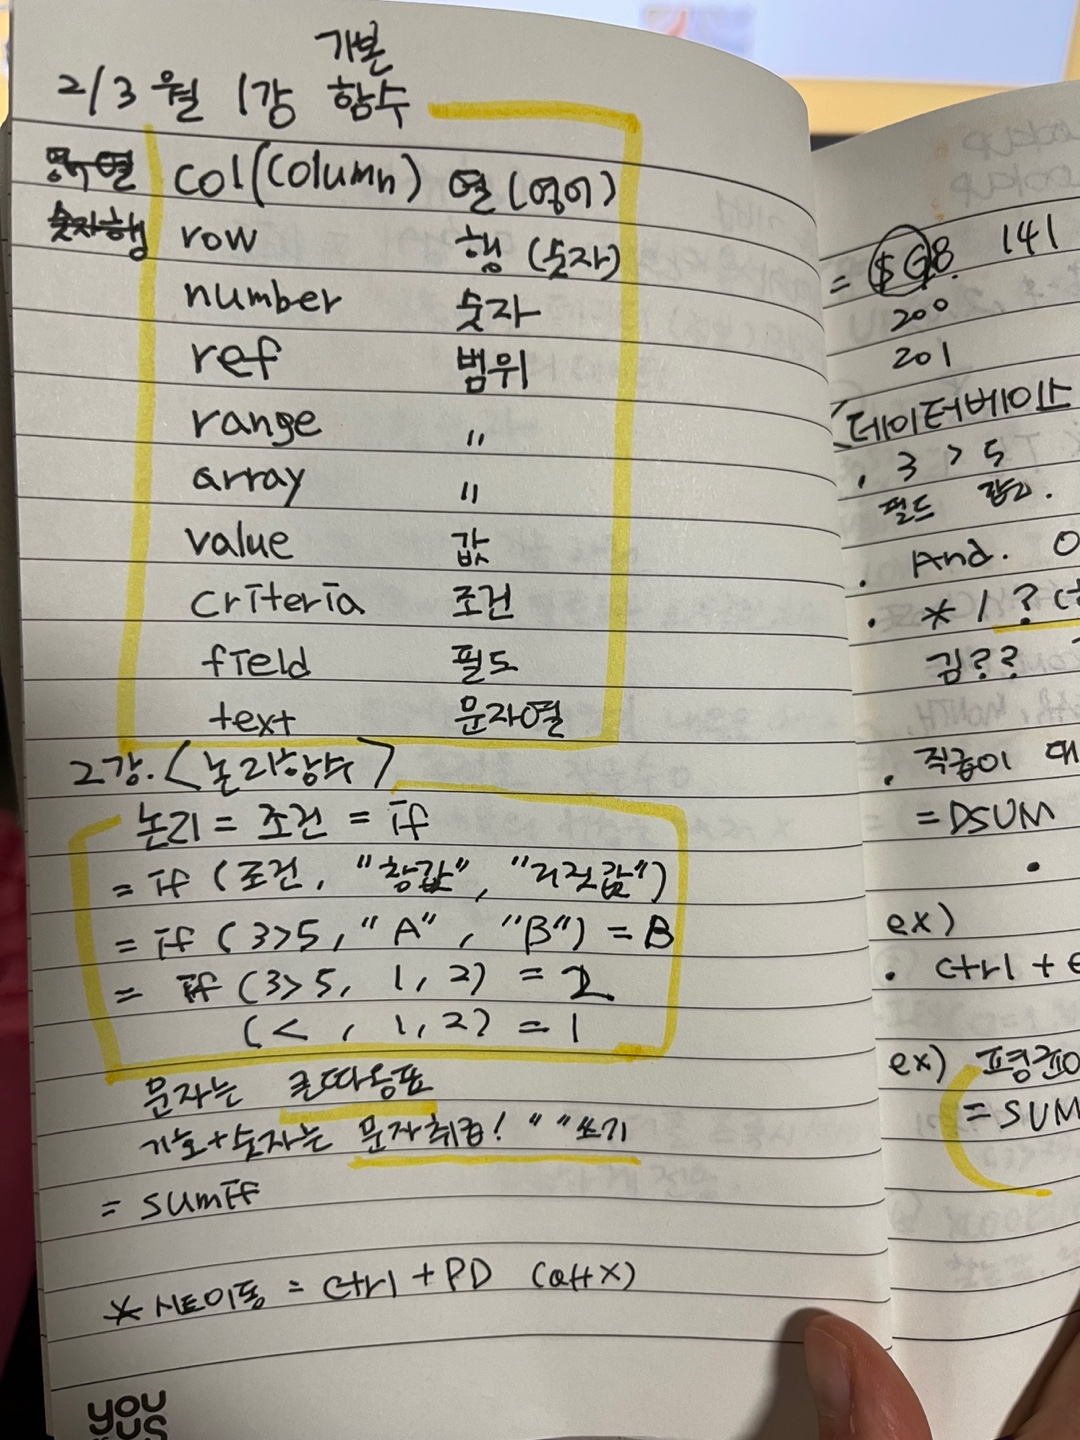 기본
2/3 월 1강 함수
col(column) 열 (영어)
숫자행 row 행 (숫자)
number 숫자
ref 범위
range 〃
array 〃
value 값
criteria 조건
field 필드
text 문자열
2강. <논리함수>
논리 = 조건 = if
= if (조건, "참값", "거짓값")
= if (3>5, "A", "B") = B
= if (3>5, 1, 2) = 2
(< , 1, 2) = 1
문자는 큰따옴표
기호+숫자는 문자취급! " " 쓰기
= sumif
* 시트이동 = ctrl + PD (alt X)
you
us
= $G8 141
200
201
<데이터베이스
. 3 > 5
필드
. And.
. * / ?
김??
. 직급이 대
= DSUM
.
ex)
. ctrl +
ex) 평균
= SUM